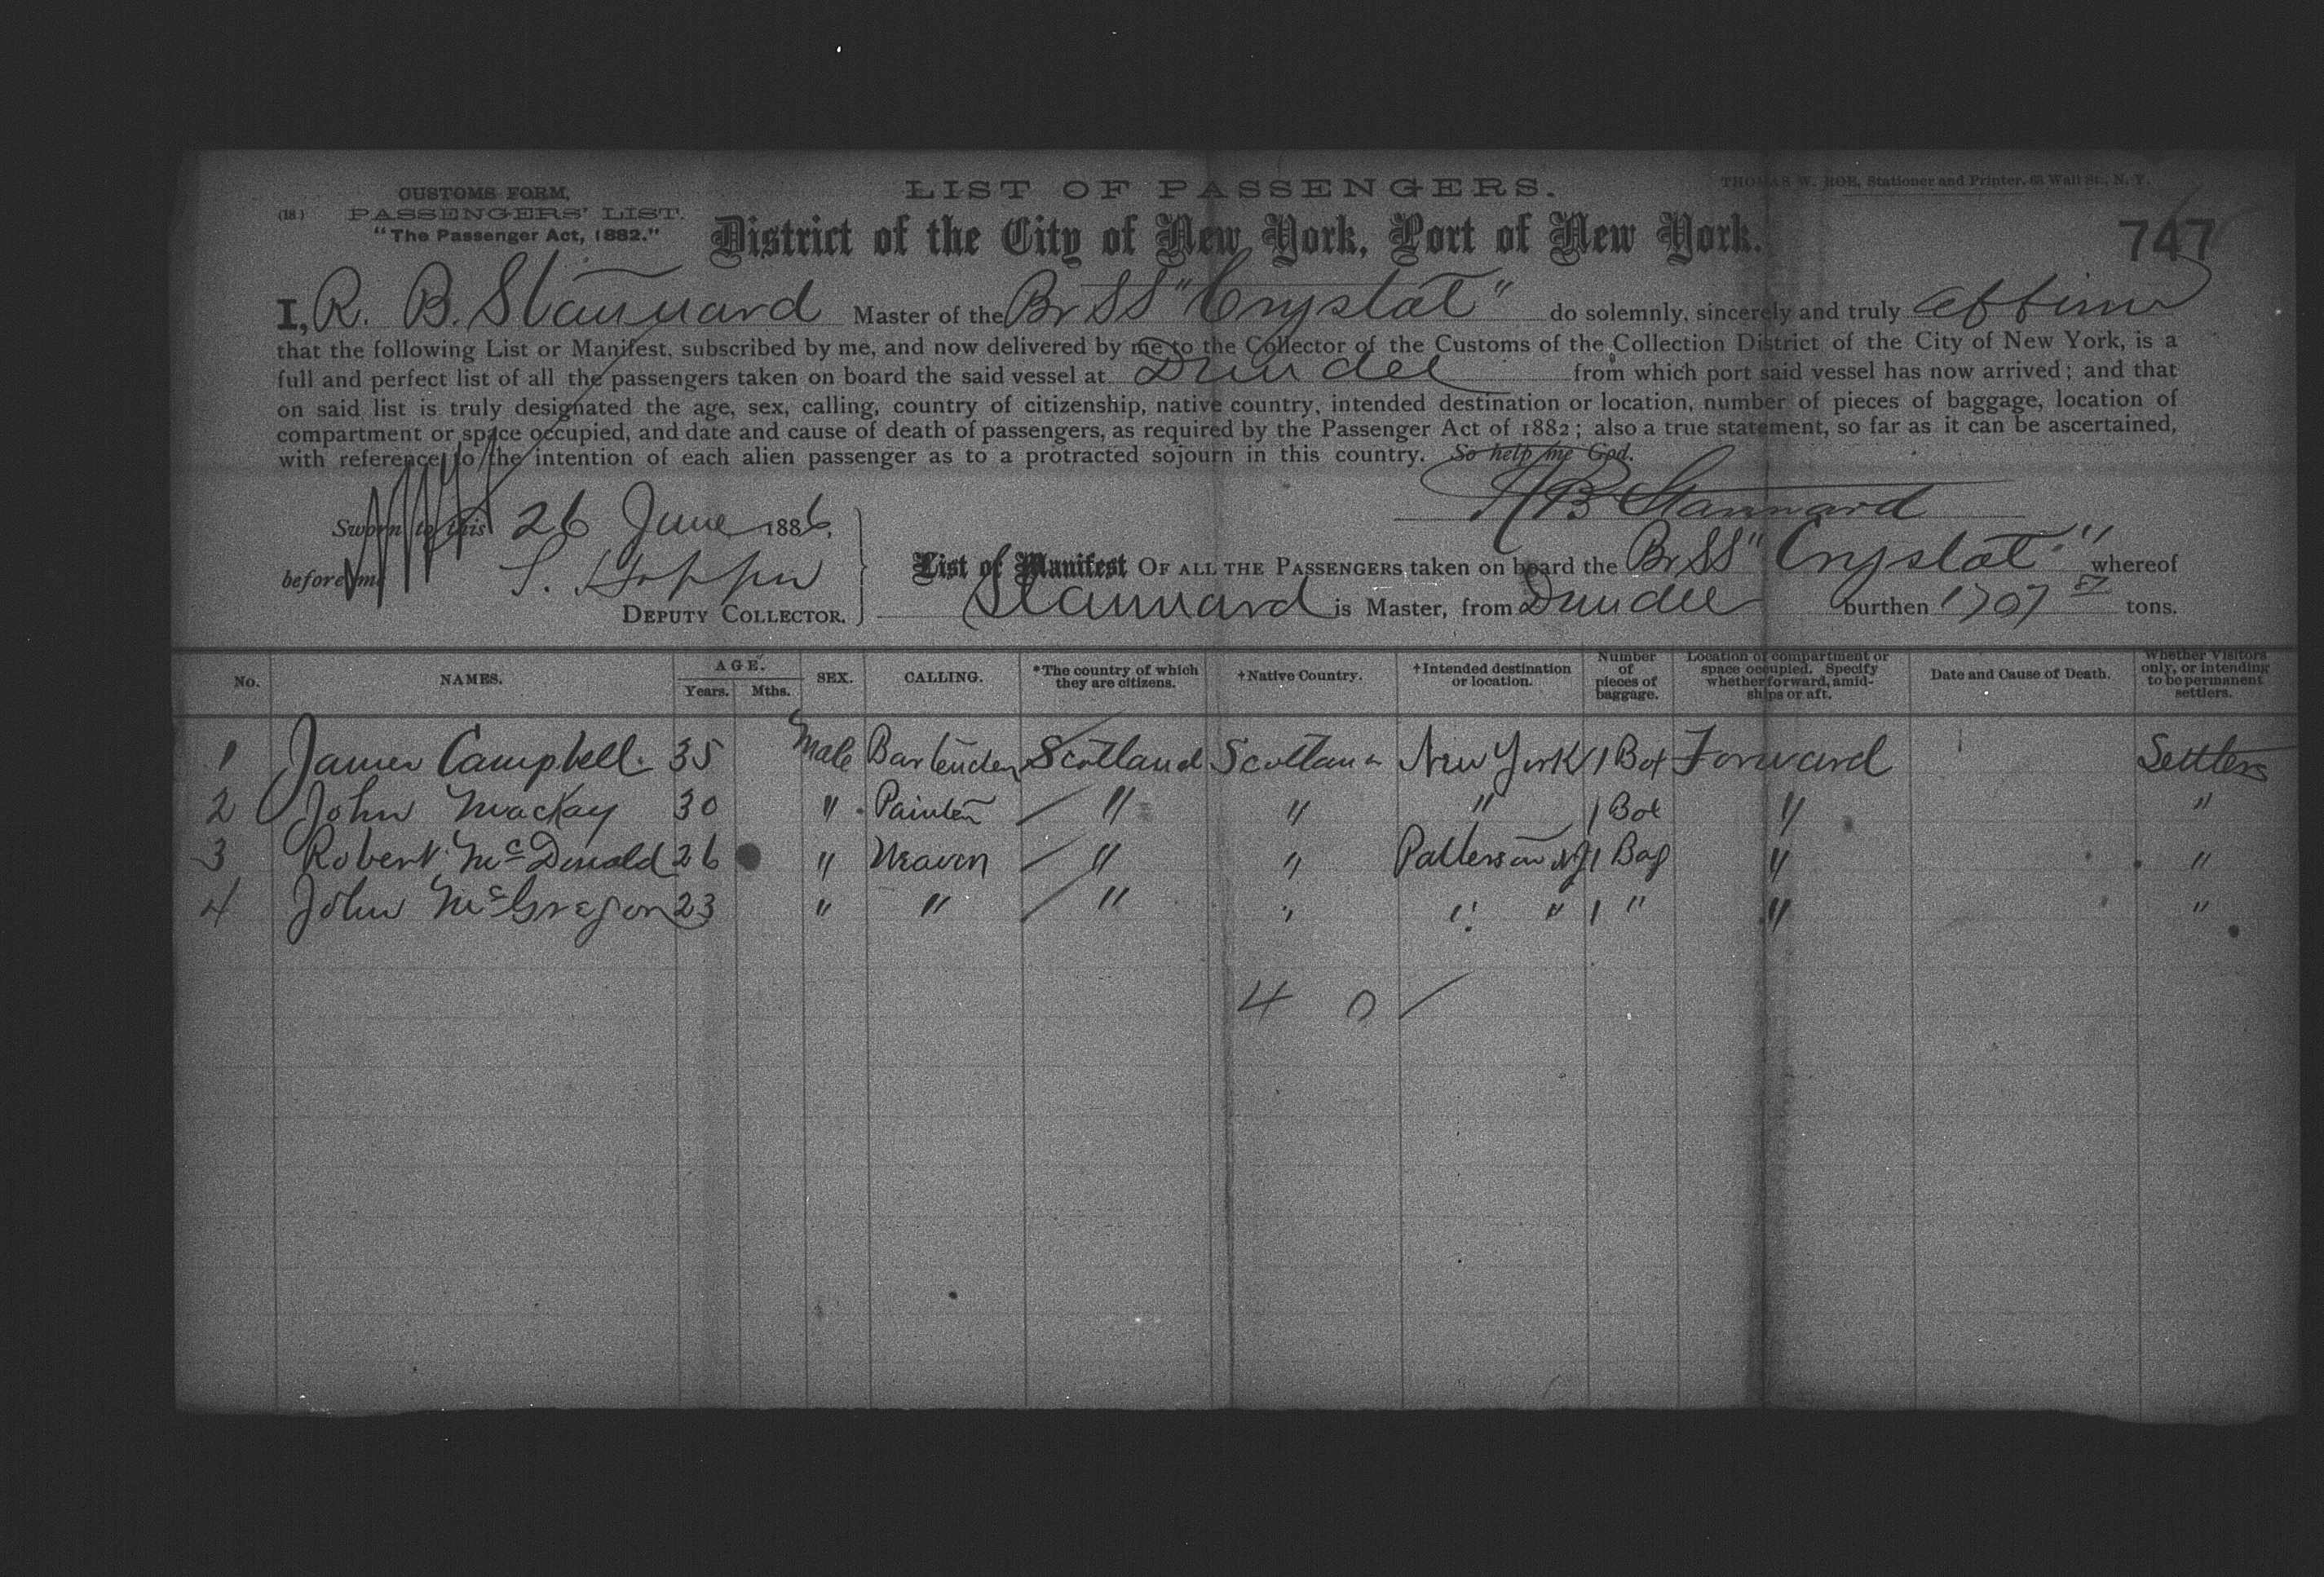 CUSTOMS FORM,
(18) PASSENGERS' LIST.
"The Passenger Act, 1882."
LIST OF PASSENGERS.
THOMAS W. ROE, Stationer and Printer, 63 Wall St., N. Y.
District of the City of New York, Port of New York.
747
I, R. B. Stannard Master of the Br SS "Crystal" do solemnly, sincerely and truly affirm
that the following List or Manifest, subscribed by me, and now delivered by me to the Collector of the Customs of the Collection District of the City of New York, is a
full and perfect list of all the passengers taken on board the said vessel at Dundee from which port said vessel has now arrived; and that
on said list is truly designated the age, sex, calling, country of citizenship, native country, intended destination or location, number of pieces of baggage, location of
compartment or space occupied, and date and cause of death of passengers, as required by the Passenger Act of 1882; also a true statement, so far as it can be ascertained,
with reference to the intention of each alien passenger as to a protracted sojourn in this country. So help me God.
R B Stannard
Sworn to this 26 June 1886,
before me
DEPUTY COLLECTOR.
List of Manifest OF ALL THE PASSENGERS taken on board the Br SS "Crystal" whereof
Stannard is Master, from Dundee burthen 1707 87 tons.
No. NAMES. AGE. Years. Mths. SEX. CALLING. *The country of which they are citizens. †Native Country. †Intended destination or location. Number of pieces of baggage. Location of compartment or space occupied. Specify whether forward, amidships or aft. Date and Cause of Death. Whether Visitors only, or intending to be permanent settlers.
1 James Campbell 35 Male Bartender Scotland Scotland New York 1 Box Forward Settlers
2 John Mackay 30 " Painter " " " 1 Box " "
3 Robert McDonald 26 " Weaver " " Patterson NJ 1 Bag " "
4 John McGregor 23 " " " " " " 1 " " "
4 0